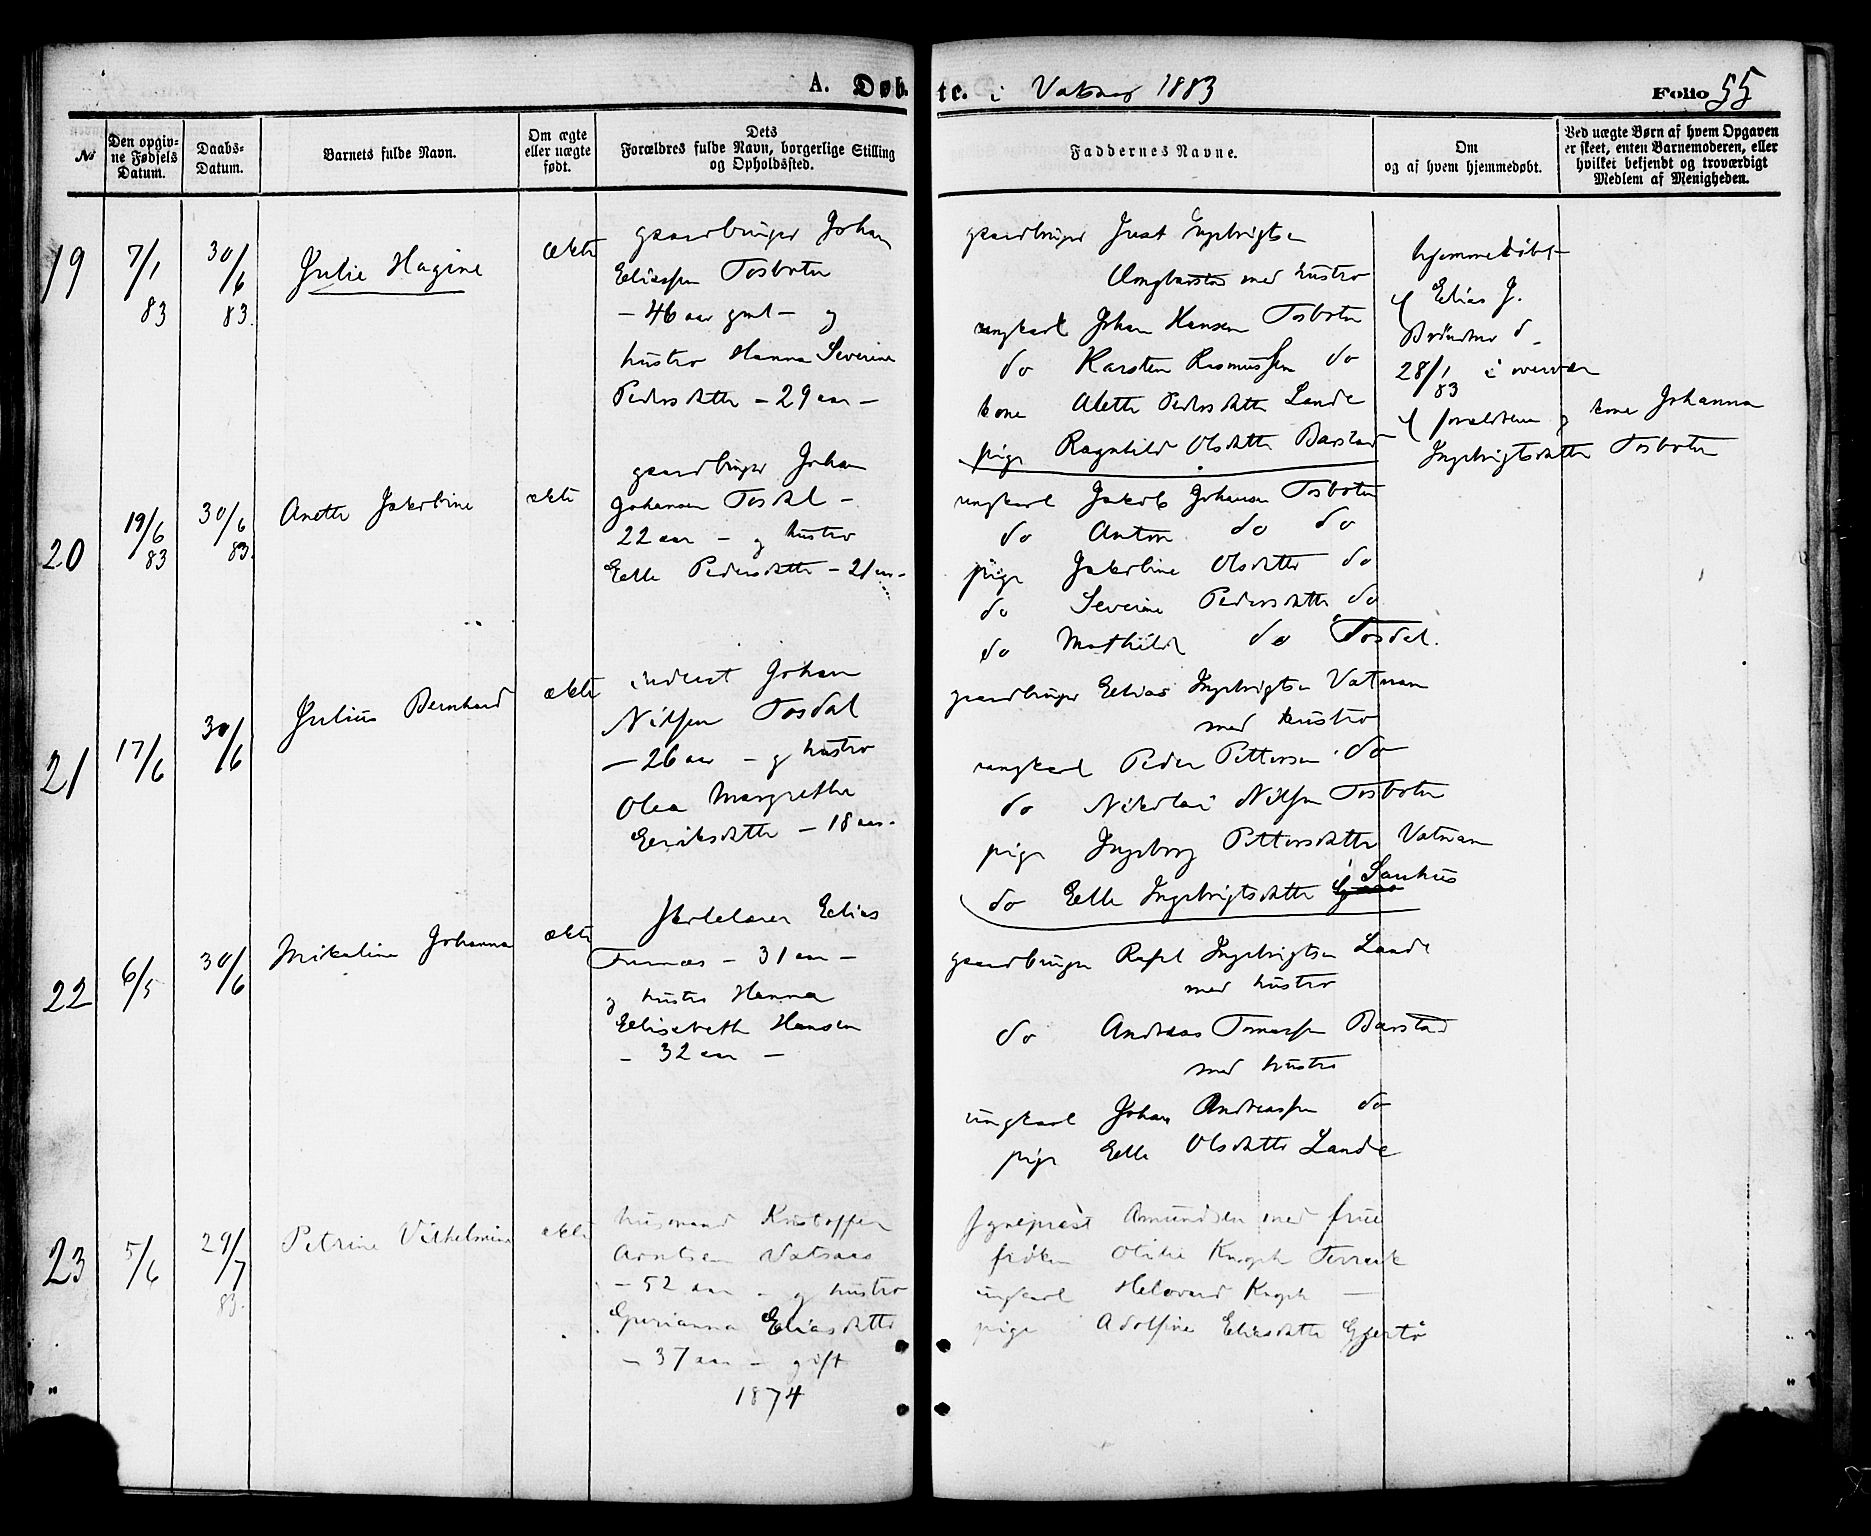 A. Døbte. i Vatnes 1883 Folio 55
No
Den opgivne Fødsels Datum.
Daabs-Datum.
Barnets fulde Navn.
Om ægte eller uægte født.
Dets Forældres fulde Navn, borgerlige Stilling og Opholdssted.
Faddernes Navne.
Om og af hvem hjemmedøbt.
Ved uægte Børn af hvem Opgaven er skeet, enten Barnemoderen, eller hvilket bekjendt og troværdigt Medlem af Menigheden.
19
7/1 83
30/6 83.
Julie Hagine
ækte
gaardbruger Johan
Eliassen Tosbotn
– 46 aar gml – og
hustro Hanna Severine
Pedersdatter – 29 aar –
gaardbruger Just Ingebrigtsen
med hustro
ungkarl Johan Hansen Tosbotn
do Karsten Rasmussen do
kone Alette Pedersdatter Lande
pige Ragnhild Olsdatter Barstad
hjemmedøbt
Elias J.
d.
28/1 83 i overvær
forældrene og kone Johanna
Ingebrigtsdatter Tosbotn
20
19/6 83
30/6 83.
Anette Jakobine
ekte
gaardbruger Johan
Johansen Tosdal –
22 aar – og hustro
Elle Pedersdatter – 21 aar –
ungkarl Jakob Johansen Tosbotn
do Anton do do
pige Jakobine Olsdatter do
do Severine Pedersdatter do
do Mathilde do Tosdal.
21
17/6
30/6
Julius Bernhard
ækte
inderst Johan
Nilsen Tosdal
– 26 aar – og hustro
Olea Margrethe
Eeriksdatter – 18 aar –
gaardbruger Elias Ingebrigtsen Vatnan
med hustro
ungkarl Peder Pettersen do
do Nikolai Nilsen Tosbotn
pige Ingeborg Pettersdatter Vatnan
do Elle Ingebrigtsdatter Sanhus
22
6/5
30/6
Mikaline Johanna
ækte
skolelærer Elias
Furnæs – 31 aar –
og hustro Hanna
Elisabeth Hansen
– 32 aar –
gaardbruger Rafel Ingebrigtsen Lande
med hustro
do Andreas Tomassen Barstad
med hustro
ungkarl Johan Andreassen do
pige Elle Olsdatter Lande
23
5/6
29/7 83.
Petrine Vilhelmine
ekte
husmand Kristoffer
Arntsen Vatsaas
– 52 aar – og hustro
Gurianna Eliasdatter
– 37 aar – gift
1874
sogneprest Amundsen med frue
frøken Otilie Knoph Terraak
ungkarl Helvard Knoph —
pige Adolfine Eliasdatter Gjertø